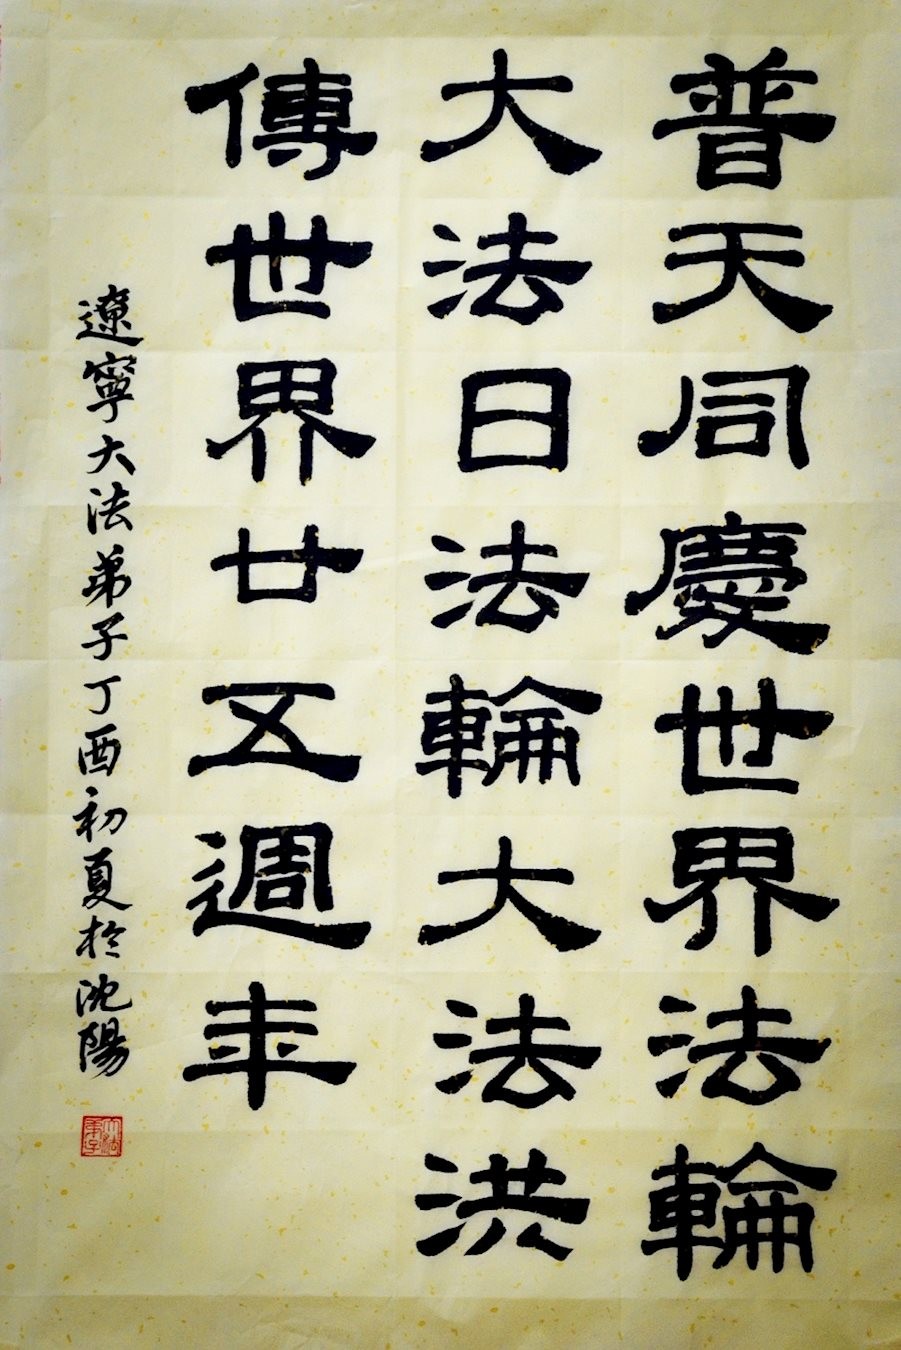 普天同慶世界法輪
大法日法輪大法洪
傳世界廿五週年
遼寧大法弟子丁酉初夏於沈陽
大法弟子